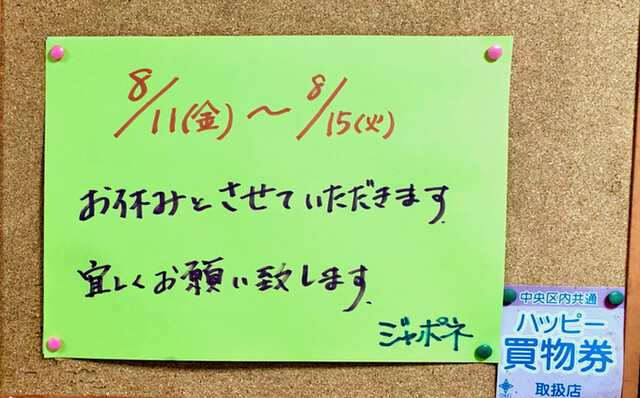 8/11(金)～8/15(火)
お休みとさせていただきます
宜しくお願い致します
ジャポネ
中央区内共通
ハッピー
買物券
取扱店